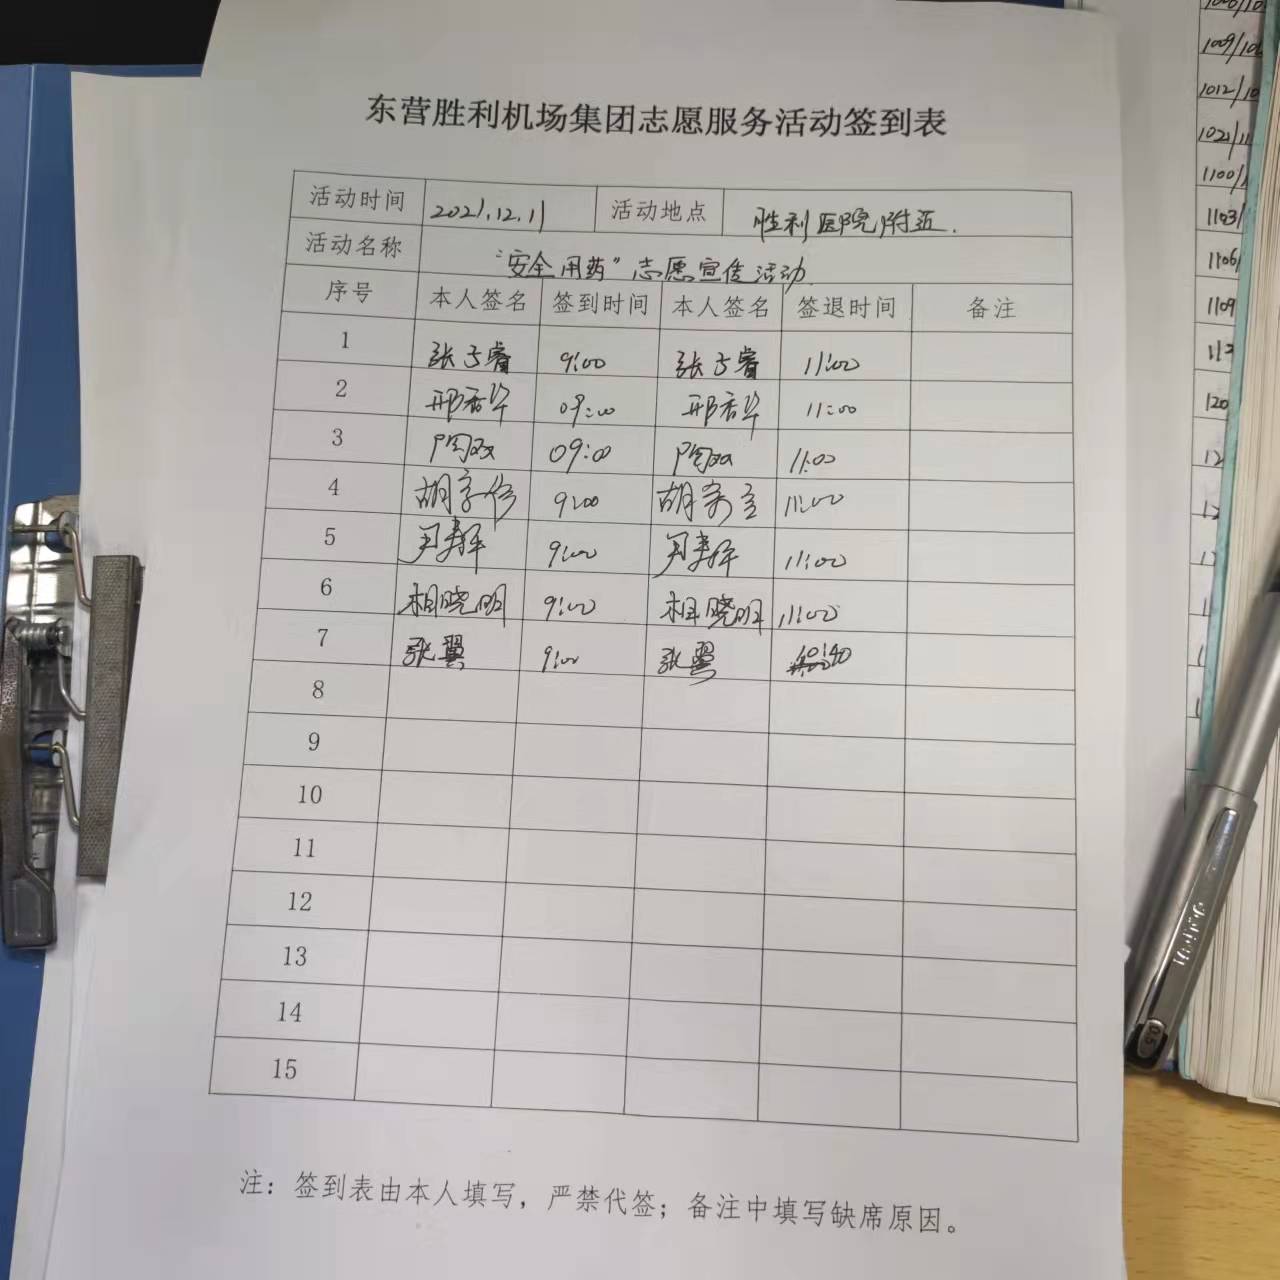 东营胜利机场集团志愿服务活动签到表
活动时间 2021.12.11 活动地点 胜利医院附近.
活动名称 “安全用药”志愿宣传活动.
序号 本人签名 签到时间 本人签名 签退时间 备注
1 张子睿 9:00 张子睿 11:00
2 邢香华 09:00 邢香华 11:00
3 陶双 09:00 陶双 11:00
4 胡 9:00 胡 11:00
5 尹 9:00 尹 11:00
6 相晓明 9:00 相晓明 11:00
7 张翼 9:00 张翼 10:40
8
9
10
11
12
13
14
15
注：签到表由本人填写，严禁代签；备注中填写缺席原因。
1009/10
1012/10
1021/11
1100/1
1103/
1106/
1109
120
0.5